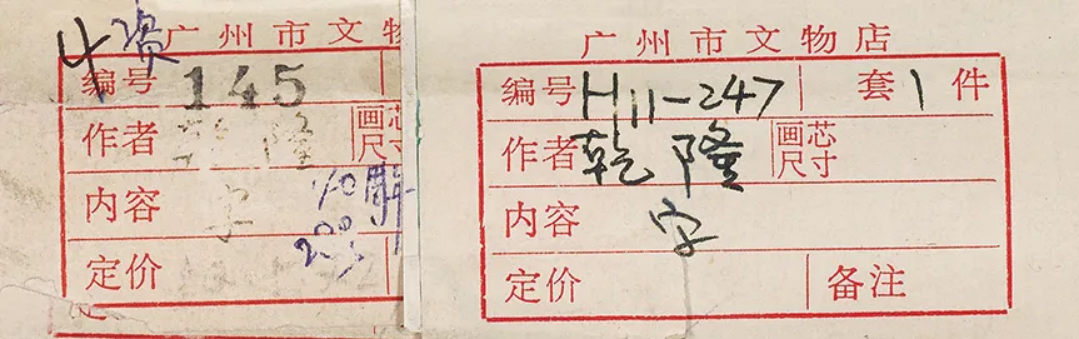 资
广州市文物
编号 145
作者 隆 画芯尺寸
内容 字
定价
广州市文物店
编号 H11-247 套 1 件
作者 乾隆 画芯尺寸
内容 字
定价 备注